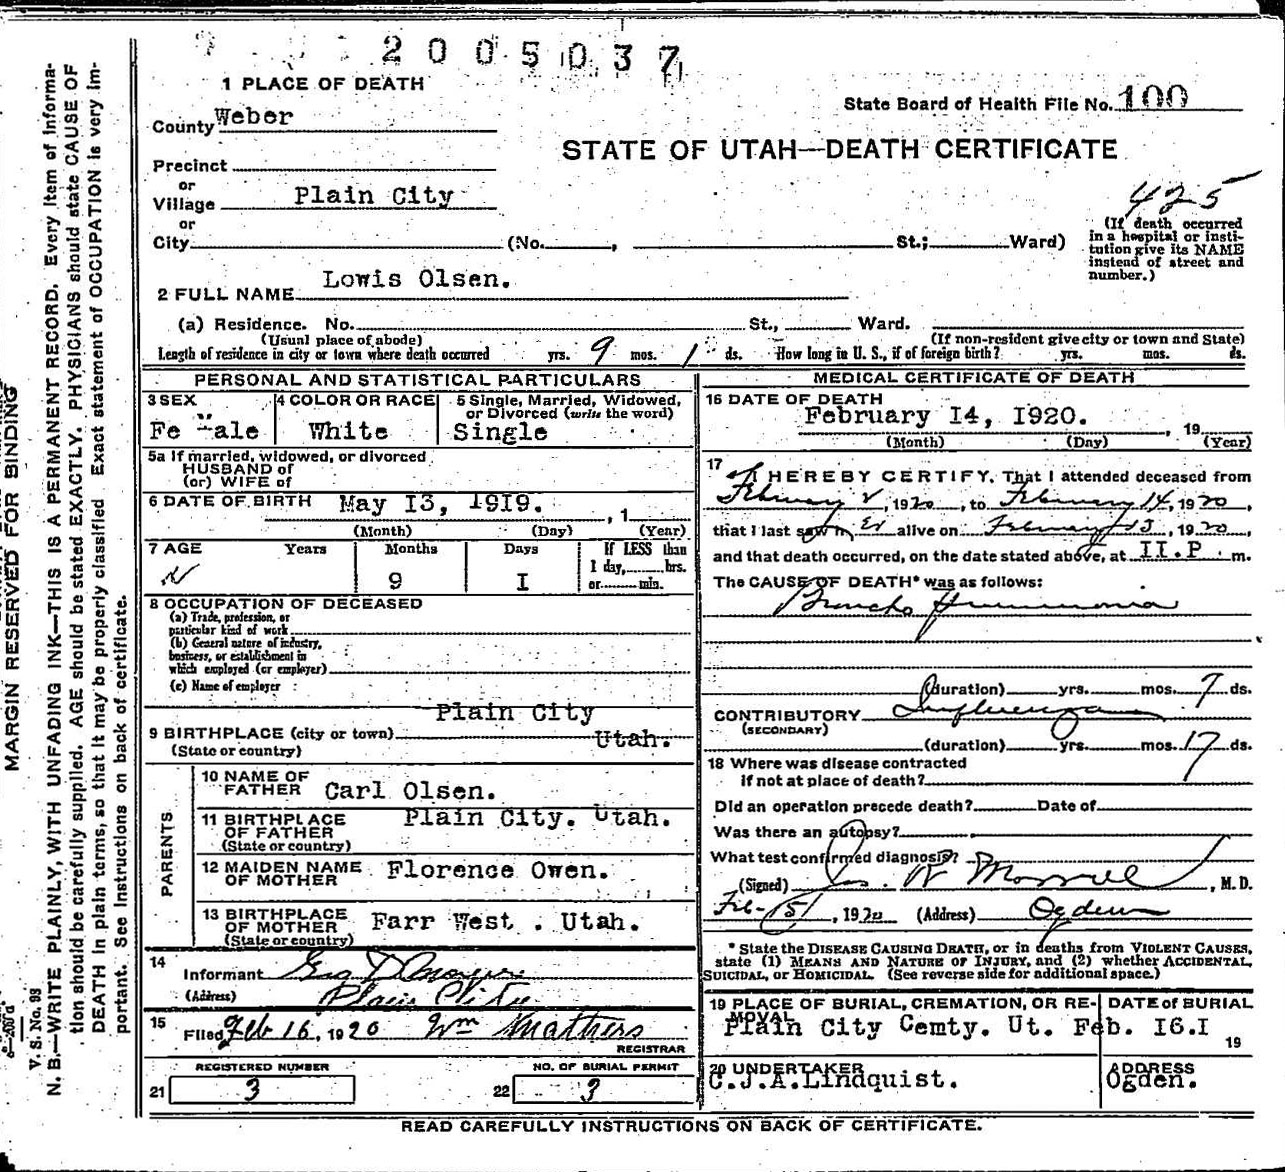 2005037
1 PLACE OF DEATH
State Board of Health File No. 100
County Weber
STATE OF UTAH—DEATH CERTIFICATE
Precinct
or
Village Plain City
425
or
City (No. , St.; Ward)
(If death occurred in a hospital or insti-
tution give its NAME
instead of street and
number.)
2 FULL NAME Lowis Olsen.
(a) Residence. No. St., Ward.
(Usual place of abode) (If non-resident give city or town and State)
Length of residence in city or town where death occurred yrs. 9 mos. 1 ds. How long in U. S., if of foreign birth? yrs. mos. ds.
PERSONAL AND STATISTICAL PARTICULARS
3 SEX 4 COLOR OR RACE 5 Single, Married, Widowed,
or Divorced (write the word)
Fe Male White Single
5a If married, widowed, or divorced
HUSBAND of
(or) WIFE of
6 DATE OF BIRTH May I3, 1919. , 1
(Month) (Day) (Year)
7 AGE Years Months Days If LESS than
1 day, hrs.
or min.
9 I
8 OCCUPATION OF DECEASED
(a) Trade, profession, or
particular kind of work
(b) General nature of industry,
business, or establishment in
which employed (or employer)
(c) Name of employer
Plain City
9 BIRTHPLACE (city or town)
(State or country) Utah.
PARENTS
10 NAME OF
FATHER Carl Olsen.
11 BIRTHPLACE
OF FATHER Plain City. Utah.
(State or country)
12 MAIDEN NAME
OF MOTHER Florence Owen.
13 BIRTHPLACE
OF MOTHER Farr West . Utah.
(State or country)
14
Informant Geo
(Address) Plain City
15
Filed Feb 16, 1920 Wm
REGISTRAR
REGISTERED NUMBER NO. OF BURIAL PERMIT
21 3 22 3
MEDICAL CERTIFICATE OF DEATH
16 DATE OF DEATH
February I4, I920. , 19
(Month) (Day) (Year)
17 I HEREBY CERTIFY, That I attended deceased from
February 2, 1920, to February 14, 1920,
that I last saw h er alive on February 13, 1920
and that death occurred, on the date stated above, at II.P m.
The CAUSE OF DEATH* was as follows:
Broncho Pneumonia
(duration) yrs. mos. 7 ds.
CONTRIBUTORY Influenza
(SECONDARY)
(duration) yrs. mos. 17 ds.
18 Where was disease contracted
if not at place of death?
Did an operation precede death? Date of
Was there an autopsy?
What test confirmed diagnosis?
(Signed) Jas. R Morrell, M. D.
Feb-15, 1920 (Address) Ogden
* State the DISEASE CAUSING DEATH, or in deaths from VIOLENT CAUSES,
state (1) MEANS AND NATURE OF INJURY, and (2) whether ACCIDENTAL,
SUICIDAL, or HOMICIDAL. (See reverse side for additional space.)
19 PLACE OF BURIAL, CREMATION, OR RE-
MOVAL DATE of BURIAL
Plain City Cemty. Ut. Feb. I6.I
19
20 UNDERTAKER ADDRESS
C.J.A.Lindquist. Ogden.
READ CAREFULLY INSTRUCTIONS ON BACK OF CERTIFICATE.
MARGIN RESERVED FOR BINDING
V. S. No. 98
N. B.—WRITE PLAINLY, WITH UNFADING INK—THIS IS A PERMANENT RECORD. Every item of informa-
tion should be carefully supplied. AGE should be stated EXACTLY. PHYSICIANS should state CAUSE OF
DEATH in plain terms, so that it may be properly classified. Exact statement of OCCUPATION is very im-
portant. See Instructions on back of certificate.